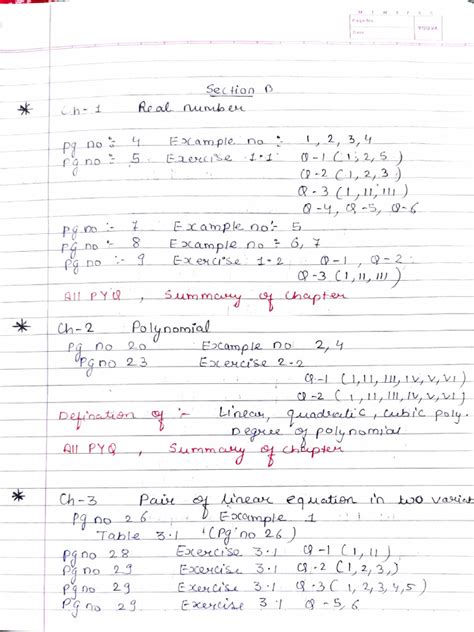 Page No.
Date
YOUVA
Section B
* Ch-1 Real number
Pg no :- 4 Example no :- 1, 2, 3, 4
Pg no :- 5 Exercise 1.1 :- Q-1 (1, 2, 5)
Q-2 (1, 2, 3)
Q-3 (I, II, III)
Q-4, Q-5, Q-6
Pg no :- 7 Example no :- 5
Pg no :- 8 Example no :- 6, 7
Pg no :- 9 Exercise 1.2 Q-1, Q-2
Q-3 (I, II, III)
All PYQ , Summary of chapter
* Ch-2 Polynomial
Pg no 20 Example no 2, 4
Pg no 23 Exercise 2.2
Q-1 (I, II, III, IV, V, VI)
Q-2 (I, II, III, IV, V, VI)
Defination of :- Linear, quadratic, cubic poly.
Degree of polynomial
All PYQ , Summary of chapter
* Ch-3 Pair of linear equation in two variat
Pg no 26 Example 1
Table 3.1 (Pg no 26)
Pg no 28 Exercise 3.1 Q-1 (I, II)
Pg no 29 Exercise 3.1 Q-2 (1, 2, 3)
Pg no 29 Exercise 3.1 Q-3 (1, 2, 3, 4, 5)
Pg no 29 Exercise 3.1 Q-5, 6